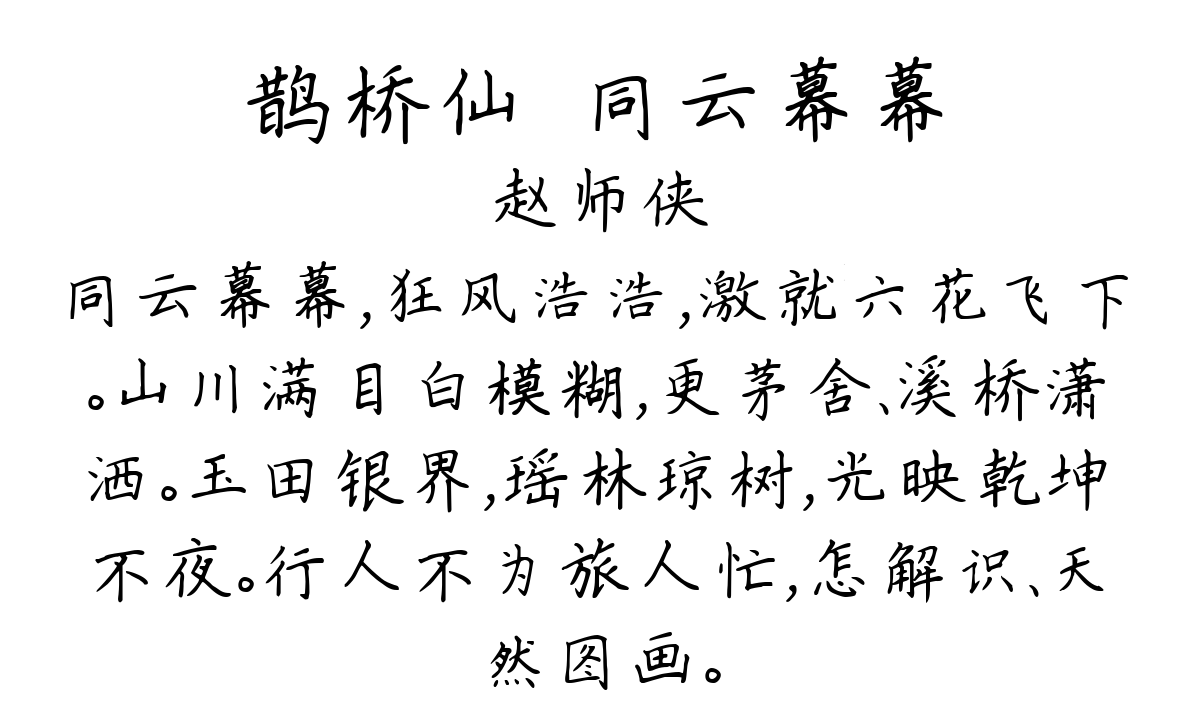 鹊桥仙 同云幕幕
赵师侠
同云幕幕,狂风浩浩,激就六花飞下
。山川满目白模糊,更茅舍、溪桥潇
洒。玉田银界,瑶林琼树,光映乾坤
不夜。行人不为旅人忙,怎解识、天
然图画。